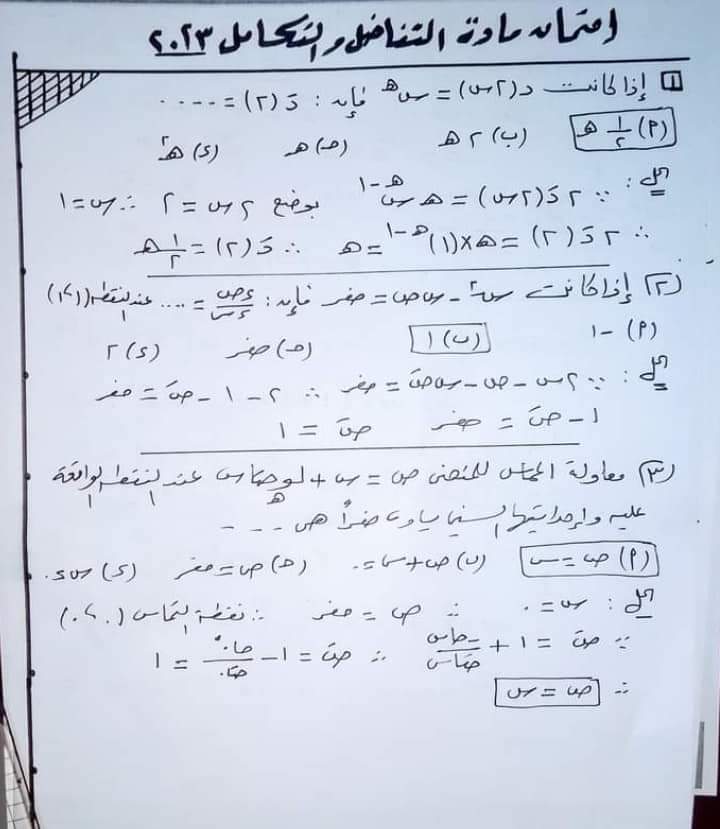 امتحان مادة التفاضل والتكامل ٢٠٢٣
١ إذا كانت د(٢س) = س^هـ فإن: دَ(٢) = ....
(٢) ١/٢ هـ (ب) ٢ هـ (حـ) هـ (ء) هـ^٢
الحل: ∵ ٢ دَ(٢س) = هـ س^هـ-١ بوضع ٢س = ٢ ∴ س = ١
∴ ٢ دَ(٢) = هـ × (١)^هـ-١ = هـ ∴ دَ(٢) = ١/٢ هـ
(٢) إذا كانت س^٢ - س ص = صفر فإن: ءص/ءس = .... عند النقطة (١،١)
(٢) -١ (ب) ١ (حـ) صفر (ء) ٢
الحل: ∵ ٢س - ص - س صَ = صفر ∴ ٢ - ١ - صَ = صفر
١ - صَ = صفر صَ = ١
(٣) معادلة المماس للمنحنى ص = س + لو هـ حتاس عند النقطة الواقعة
عليه وإحداثيها السينى يساوى صفراً هى ....
(٢) ص = س (ب) ص + س = ٠ (حـ) ص = صفر (ء)
الحل: س = ٠ ∴ ص = صفر ∴ نقطة التماس (٠،٠)
∵ صَ = ١ + -حاس/حتاس ∴ صَ = ١ - حا٠°/حتا٠ = ١
∴ ص = س